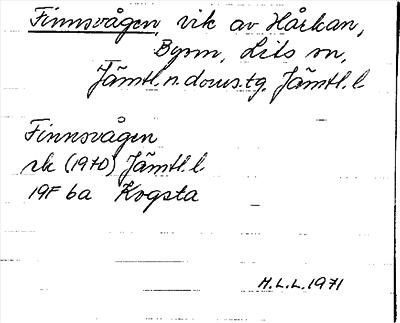 Finnsvågen, vik av Hårkan,
Bynn, Lits sn,
Jämtl. n. doms.tg. Jämtl. l.
Finnsvågen
rk (1970) Jämtl. l
19F 6a Kogsta
H.L.L. 1971